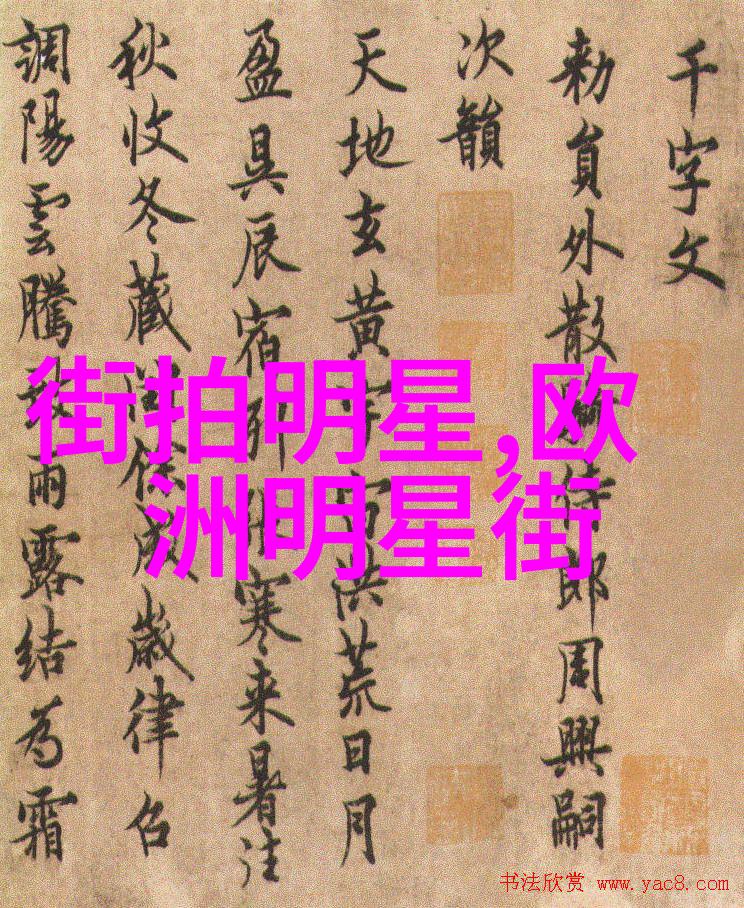 千字文
勅員外散侍郎周興嗣
次韻
天地玄黄宙洪荒日月
盈昃辰宿列張寒来暑往
秋收冬藏成歲律吕
調陽雲騰致雨露結為霜
街拍明星,欧
洲明星街
书法欣赏 www.yac8.com